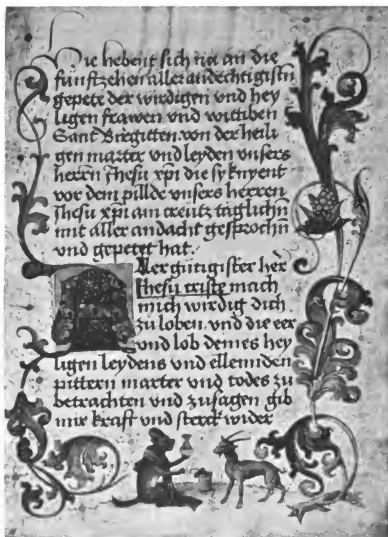 Hie hebent sich nu an die
funftzehen aller andechtigistn
gepete der wirdigen vnd hey
ligen frawen vnd wittiben
Sant Bregitten von der heili
gen marter vnd leyden vnsers
herren Jhesu xpi die sy knyent
vor dem pillde vnsers herren
Jhesu xpi am creutz täglichn
mit aller andacht gesprochn
vnd gepetet hat.
Aller gütigister her
Jhesu criste mach
mich wirdig dich
zu loben. vnd die eer
vnd lob deines hey
ligen leydens vnd ellennden
pittern marter vnd todes zu
betrachten vnd zusagen gib
mir kraft vnd sterck wider